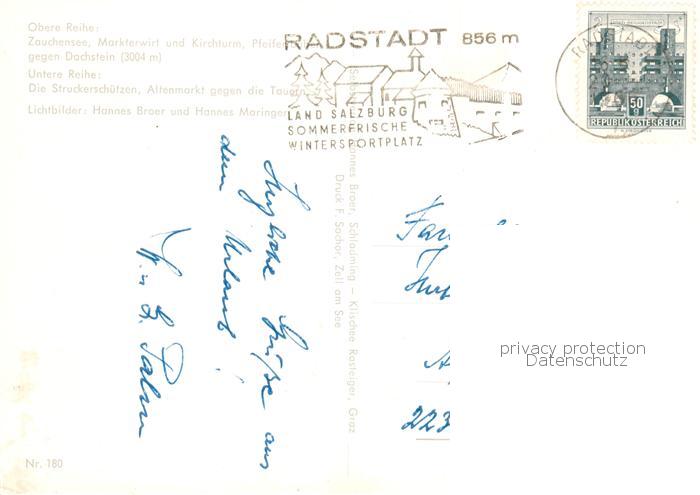 Obere Reihe:
Zauchensee, Markterwirt und Kirchturm,
gegen Dachstein (3004 m)
Untere Reihe:
Die Struckerschützen, Altenmarkt gegen die
Lichtbilder: Hannes Broer und Hannes Maringer
RADSTADT 856 m
LAND SALZBURG
SOMMERFRISCHE
WINTERSPORTPLATZ
50 g
REPUBLIK ÖSTERREICH
Broer, Schladming – Klischee Rasteiger, Graz
Druck F. Sochor, Zell am See
Herzliche Grüße aus
dem Urlaub!
L. Palm
Fam
223
privacy protection
Datenschutz
Nr. 180